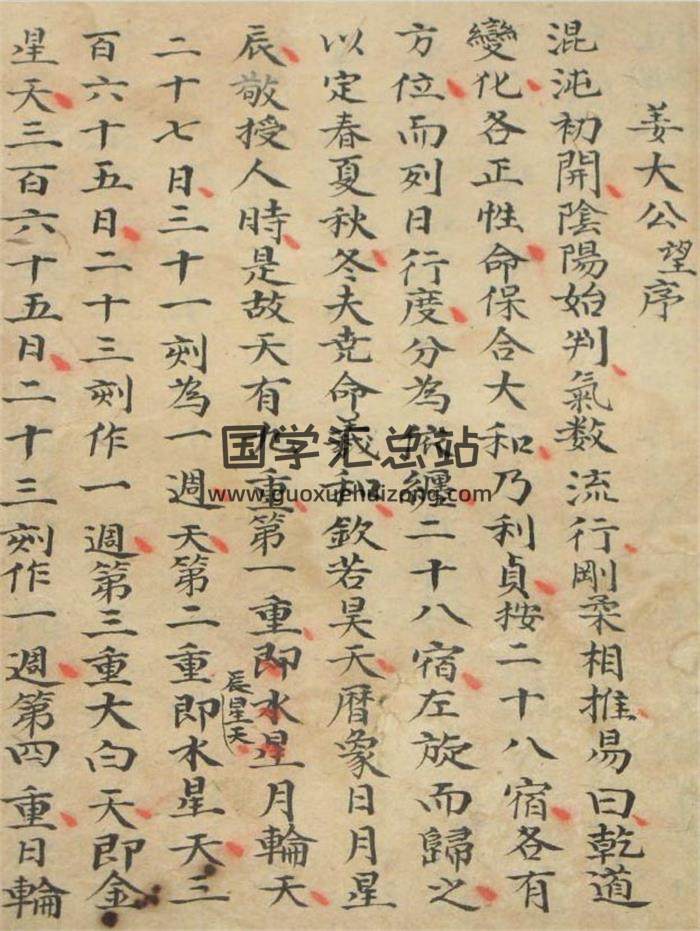 姜大公望序
混沌初開陰陽始判氣数流行剛柔相推易曰乾道
變化各正性命保合大和乃利貞按二十八宿各有
方位而列日行度分為 纏二十八宿左旋而歸之
以定春夏秋冬夫尭命羲和欽若昊天暦象日月星
辰敬授人時是故天有九重第一重即水星月輪天
辰星天
二十七日三十一刻為一週天第二重即水星天三
百六十五日二十三刻作一週第三重大白天即金
星天三百六十五日二十三刻作一週第四重日輪
国学汇总站
www.guoxuehuizong.com